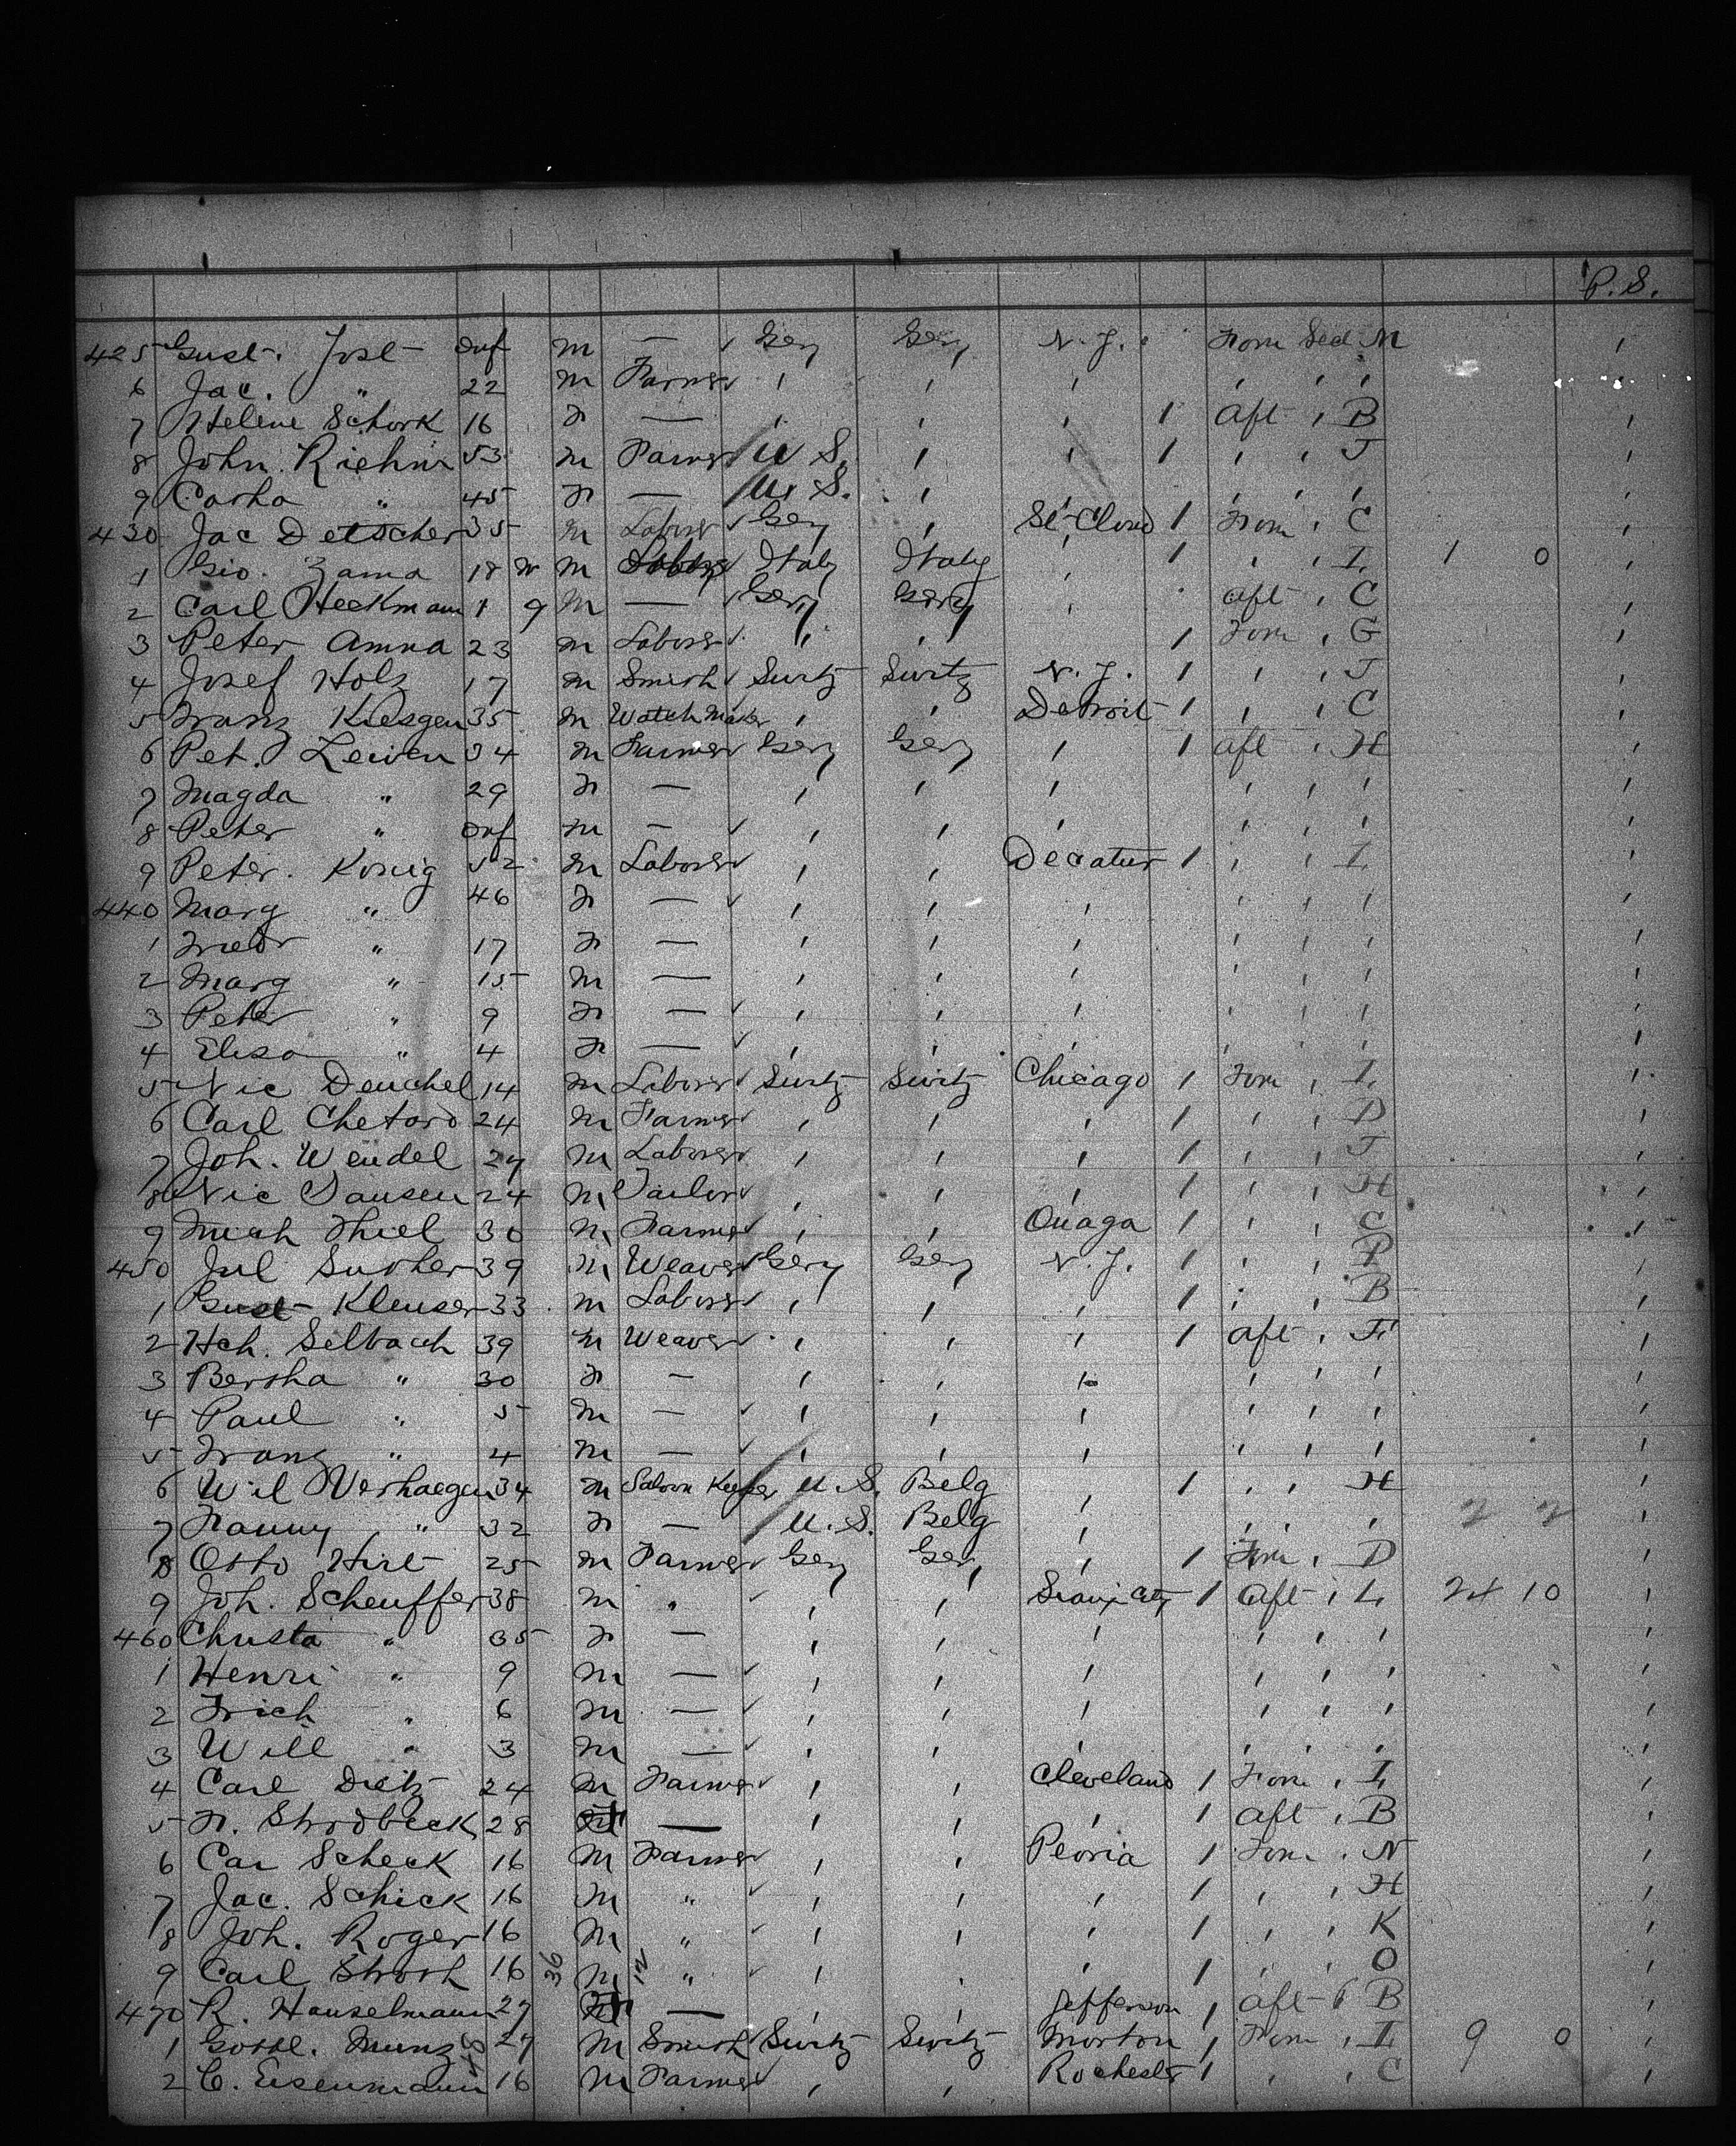 P. S.
425 Gust. Jost Inf m — ✓ Gery Gery N. J. Forw Sed M
6 Jac. " 22 m Farmer ✓ ' ' ' ' ' '
7 Helene Schork 16 f — ' ' ' 1 aft ' B
8 John. Riehm 53 m Farmer U S. ' ' 1 ' ' J
9 " 45 f — U. S. ' ' ' ' '
430 Jac Detscher 35 m Laborer ✓ Gery ' St-Cloud 1 Forw ' C
1 Gio. Zama 18 m Italy Italy ' 1 ' ' I 1 0
2 Carl Heckmann 1 9 m — ✓ Gery Gery ' aft ' C
3 Peter Amma 23 m Laborer ✓ ' ' 1 Forw ' G
4 Josef Holz 17 m Smith ✓ Switz Switz N. J. 1 ' ' J
5 Franz Kiesgen 35 m Watch Maker ' ' Detroit 1 ' ' C
6 Pet. Leiven 34 m Farmer ✓ Gery Gery ' 1 aft ' H
7 Magda " 29 f — ' ' ' ' ' '
8 Peter " Inf m — ✓ ' ' ' ' ' '
9 Peter. Konig 52 m Laborer ✓ ' ' Decatur 1 ' ' I
440 Marg " 46 f — ✓ ' ' ' ' ' '
1 " 17 f — ' ' ' ' ' '
2 Marg " 15 m — ' ' ' ' ' '
3 Peter " 9 f — ✓ ' ' ' ' ' '
4 Elisa " 4 f — ✓ ' ' ' ' ' '
5 Nic Deuchel 14 m Laborer ✓ Switz Switz Chicago 1 Forw ' I
6 Carl Chetard 24 m Farmer ✓ ' ' ' 1 ' ' D
7 Joh. Wendel 27 m Laborer ✓ ' ' ' 1 ' ' J
8 Nic Jansen 24 m Tailor ✓ ' ' ' 1 ' ' H
9 Mich Thiel 30 m Farmer ✓ ' ' Onaga 1 ' ' C
450 Jul 39 m Weaver ✓ Gery Gery N. J. 1 ' ' P
1 Gust Kleuser 33 m Laborer ✓ ' ' ' 1 ' ' B
2 Hch. Selbach 39 m Weaver ✓ ' ' ' 1 aft ' F
3 Bertha " 30 f — ' ' ' ' ' '
4 Paul " 5 m — ✓ ' ' ' ' ' '
5 Franz " 4 m — ✓ ' ' ' ' ' '
6 Wil Verhaegen 34 m Saloon Keeper U. S. Belg ' 1 ' ' H
7 Fanny " 32 f — U. S. Belg ' ' ' ' 2 2
8 Otto Hirt 25 m Farmer ✓ Gery Ger ' 1 Forw ' D
9 Joh. Scheuffer 38 m " ✓ ' ' Sioux City 1 aft ' L 24 10
460 Christa " 35 f — ' ' ' ' ' '
1 Henri " 9 m — ✓ ' ' ' ' ' '
2 Frich " 6 m — ✓ ' ' ' ' ' '
3 Will " 3 m — ✓ ' ' ' ' ' '
4 Carl Dietz 24 m Farmer ✓ ' ' Cleveland 1 Forw ' I
5 F. Strodbeck 28 — ' ' ' 1 aft ' B
6 Car Scheck 16 m Farmer ✓ ' ' Peoria 1 Forw ' N
7 Jac. Schick 16 m " ✓ ' ' ' 1 ' ' H
8 Joh. Roger 16 m " ✓ ' ' ' 1 ' ' K
9 Carl Stroh 16 36 m 12 " ✓ ' ' ' 1 ' ' O
470 R. Hanselmann 27 — ' ' Jefferson 1 aft ' B
1 Gottl. Munz 27 m Smith ✓ Switz Switz Morton 1 Forw ' I 9 0
2 C. Eisenmann 16 m Farmer ✓ ' ' Rochester 1 ' ' C